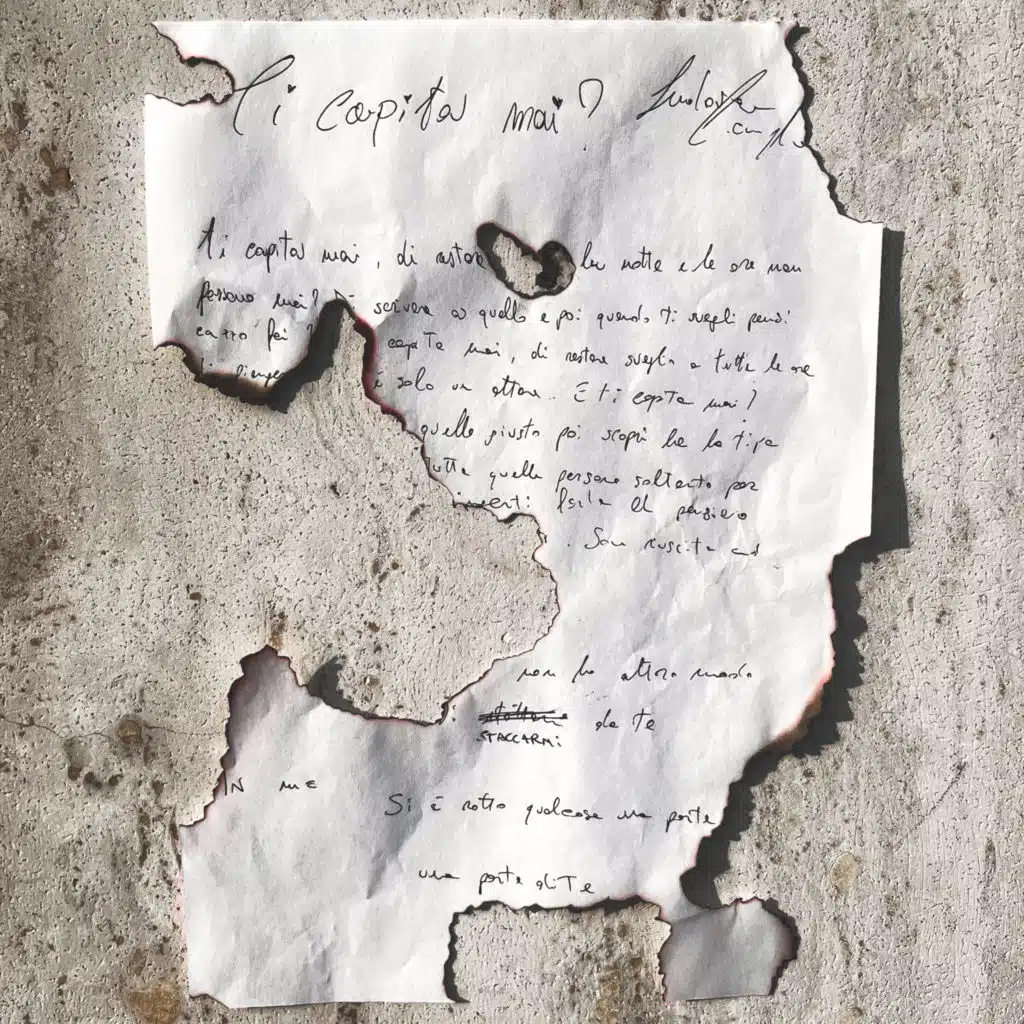 Ti capita mai?
ti capita mai, di restare la notte e le ore non
passano mai? scrivere a quello e poi quando ti svegli pensi
cazzo fai? capita mai, di restare sveglia a tutte le ore
ti piange è solo un attore.. E ti capita mai?
quello giusto poi scopri la tipa
tutte quelle persone soltanto per
il pensiero
. Son riuscita ad
non ho altro modo
STACCARMI da te
IN ME
Si è rotto qualcosa una parte
una parte di Te